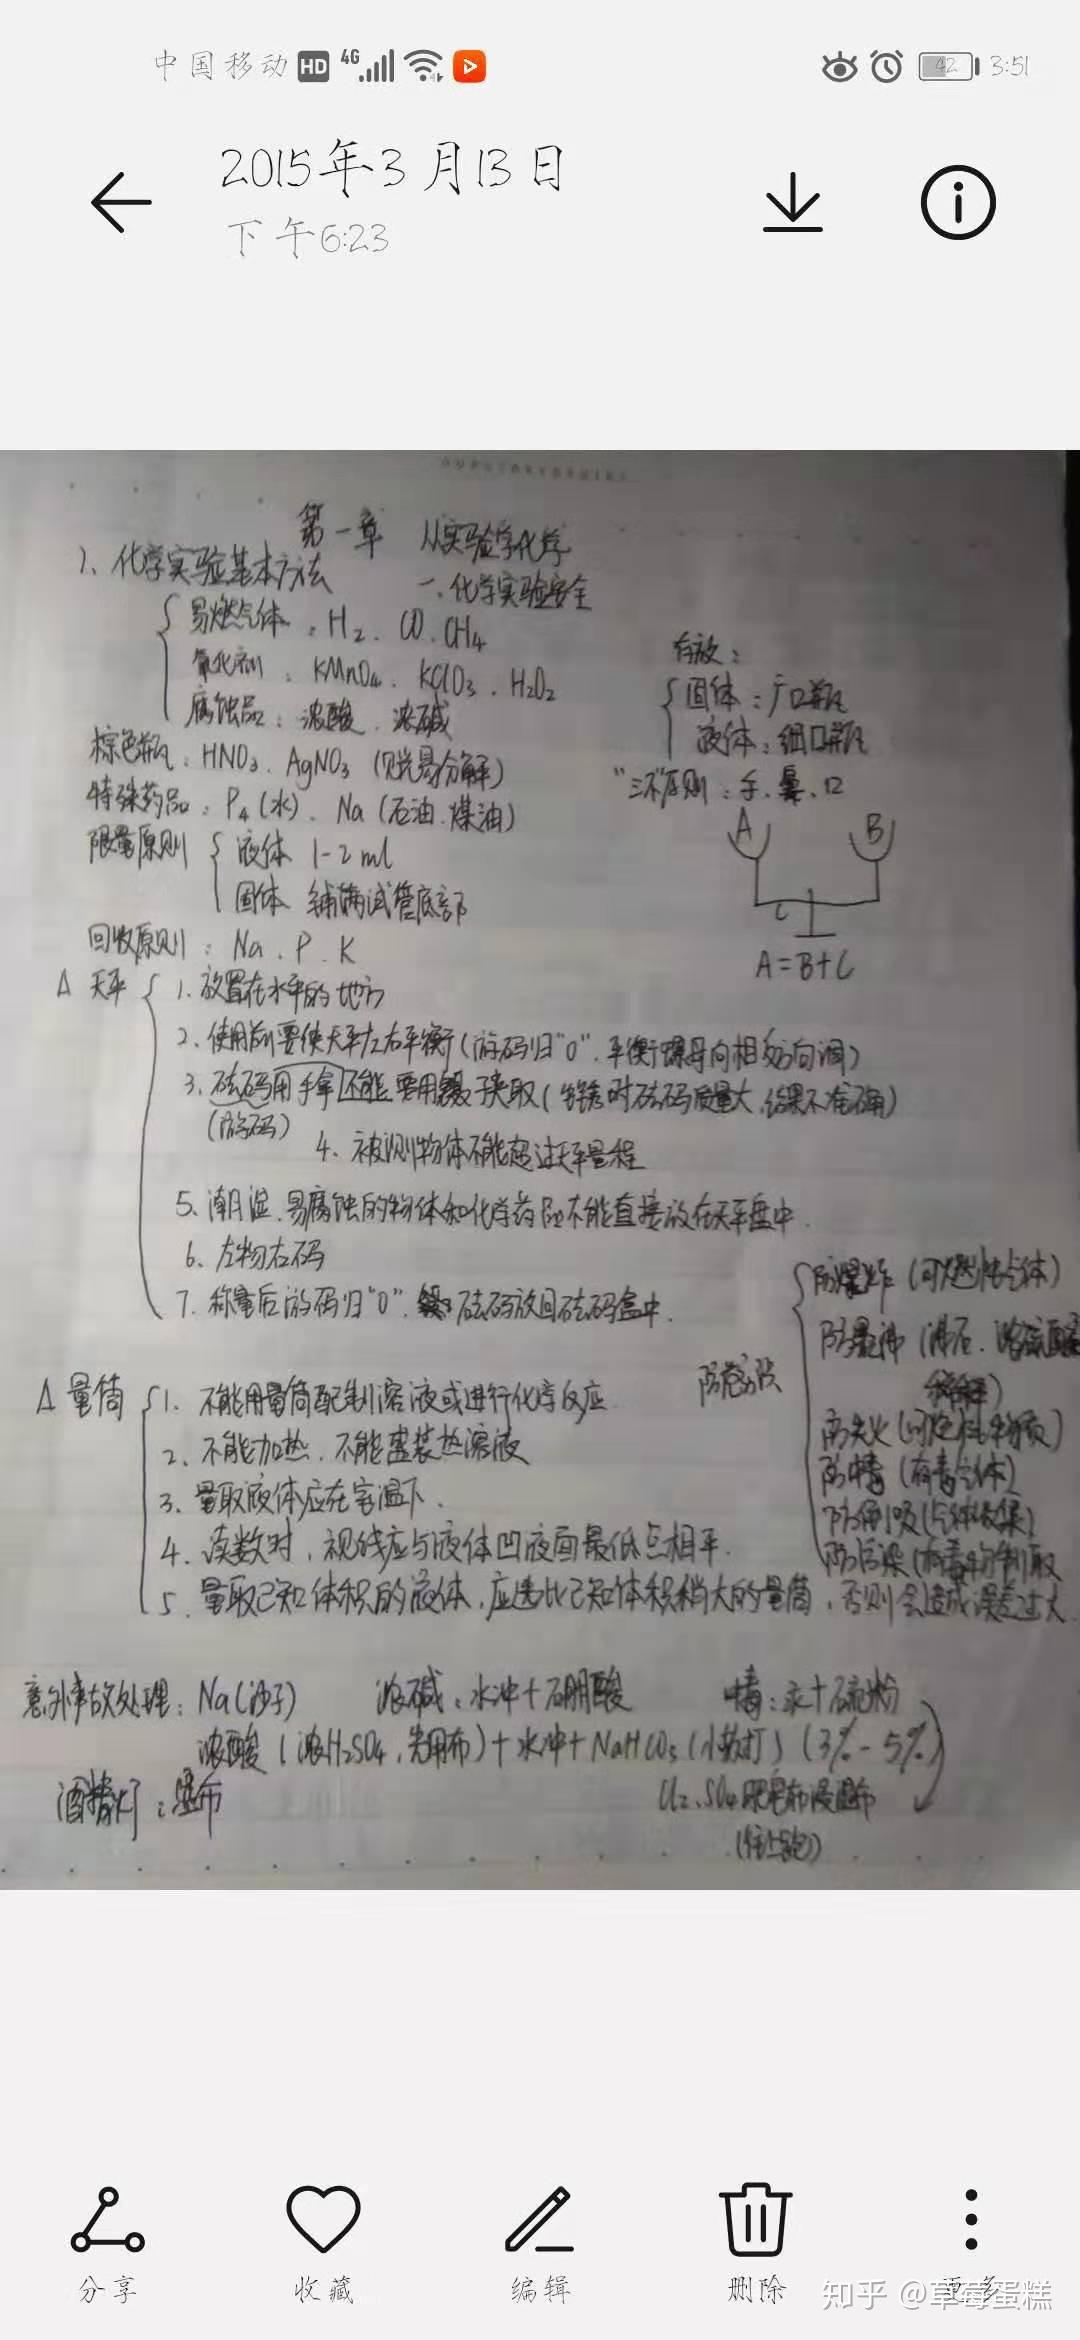 中国移动 HD 4G 42 3:51
2015年3月13日
下午6:23
第一章 从实验学化学
1、化学实验基本方法
一、化学实验安全
易燃气体：H₂、CO、CH₄
氧化剂：KMnO₄、KClO₃、H₂O₂
腐蚀品：浓酸、浓碱
存放：
固体：广口瓶
液体：细口瓶
棕色瓶：HNO₃、AgNO₃（见光易分解）
特殊药品：P₄(水)、Na(石油、煤油)
"三不"原则：手、鼻、口
限量原则
液体 1-2ml
固体 铺满试管底部
A B
C
A=B+C
回收原则：Na、P、K
△ 天平
1、放置在水平的地方
2、使用前要使天平左右平衡(游码归"0"、平衡螺母向相反方向调)
3、砝码用手拿不能要用镊子夹取(生锈时砝码质量大,结果不准确)
(游码)
4、被测物体不能超过天平量程
5、潮湿、易腐蚀的物体和化学药品不能直接放在天平盘中.
6、左物右码
7、称量后游码归"0"、砝码放回砝码盒中.
△ 量筒
1、不能用量筒配制溶液或进行化学反应
2、不能加热、不能盛装热溶液
3、量取液体应在室温下.
4、读数时，视线应与液体凹液面最低点相平.
5、量取已知体积的液体,应选比已知体积稍大的量筒，否则会造成误差过大.
防爆炸(可燃性气体)
防暴沸(沸石、浓硫酸
稀释)
防失火(可燃性物质)
防中毒(有毒气体)
防倒吸(气体收集)
防污染(有毒物制取
意外事故处理：Na(沙子)
浓碱：水冲+硼酸
毒：汞+硫粉
浓酸(浓H₂SO₄,先用布)+水冲+NaHCO₃(小苏打)(3%-5%)
酒精灯：湿布
(往上跑)
分享
收藏
编辑
删除
更多
知乎 @草莓蛋糕